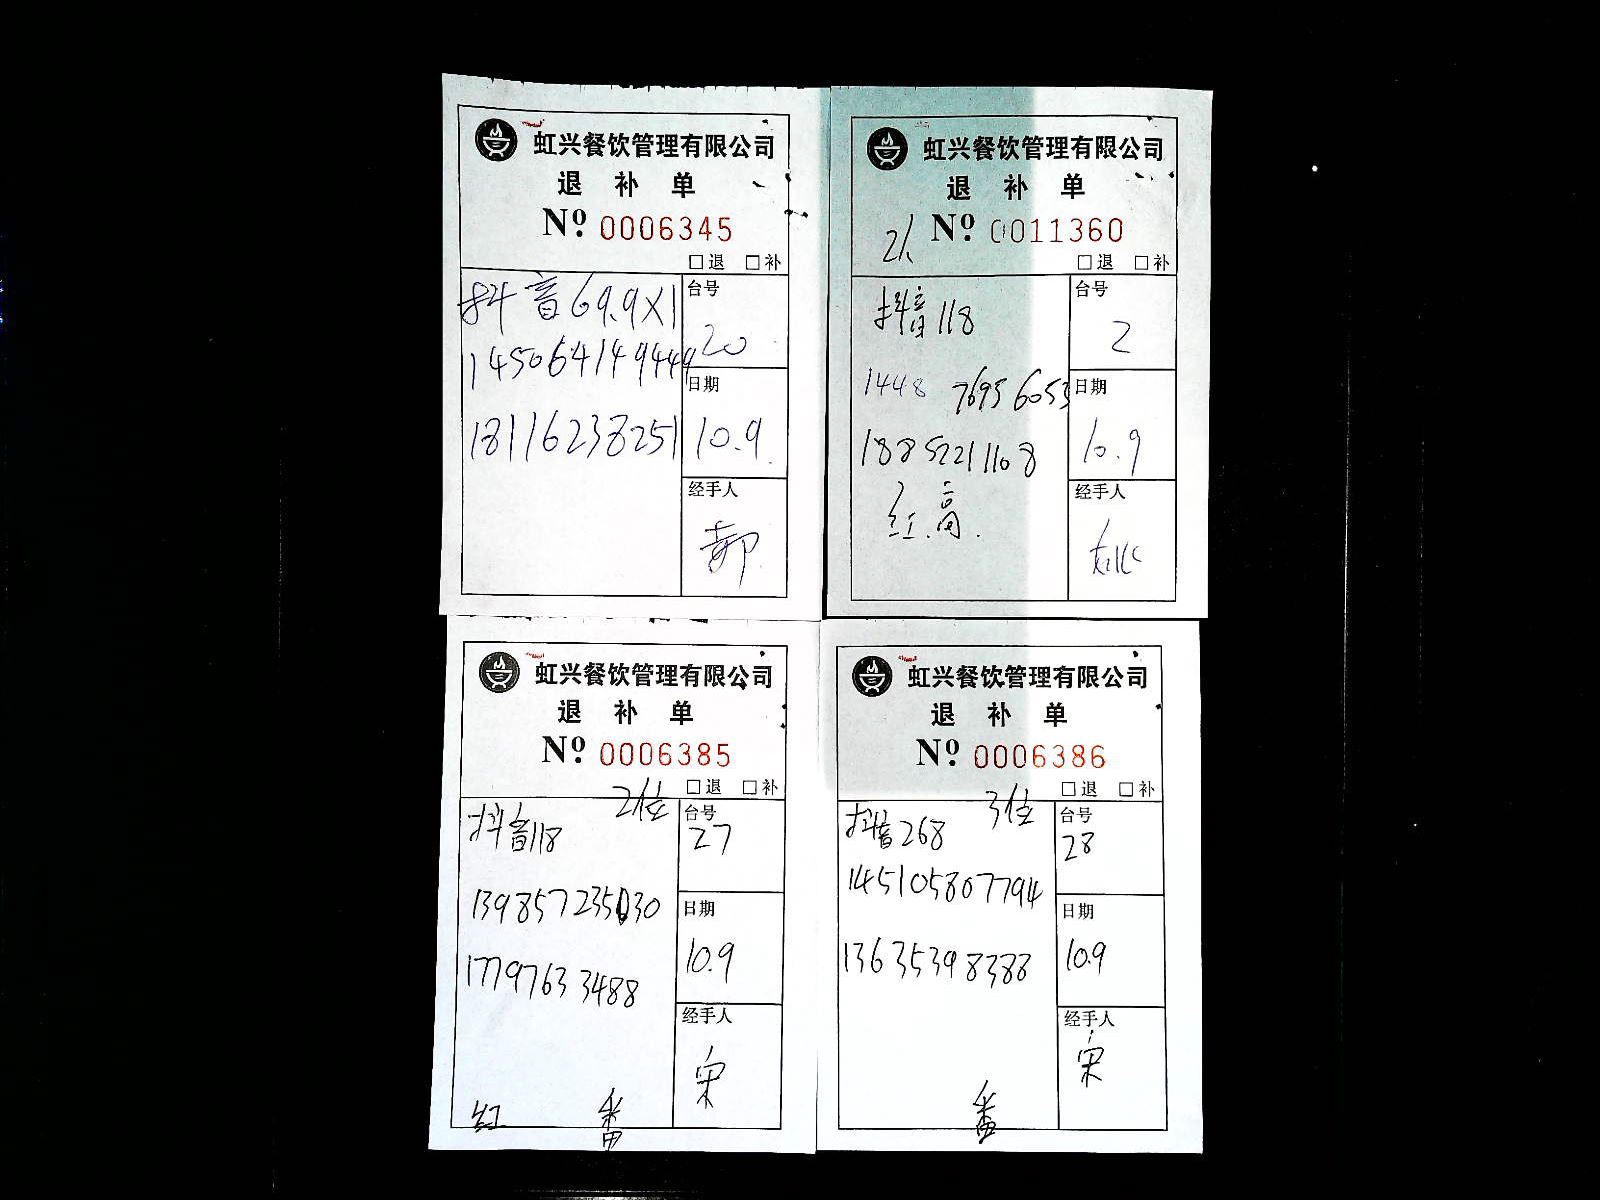 虹兴餐饮管理有限公司
退 补 单
Nº 0006345
□退 □补
抖音69.9X1
145064149449
18116238251
台号
20
日期
10.9
经手人
郭
虹兴餐饮管理有限公司
退 补 单
2人 Nº 0011360
□退 □补
抖音118
1448 76956053
18852211108
红.高.
台号
2
日期
10.9
经手人
虹兴餐饮管理有限公司
退 补 单
Nº 0006385
□退 □补
2位
抖音118
139857235030
17797633488
红 番
台号
27
日期
10.9
经手人
宋
虹兴餐饮管理有限公司
退 补 单
Nº 0006386
□退 □补
3位
抖音268
145105807794
13635398388
番
台号
28
日期
10.9
经手人
宋